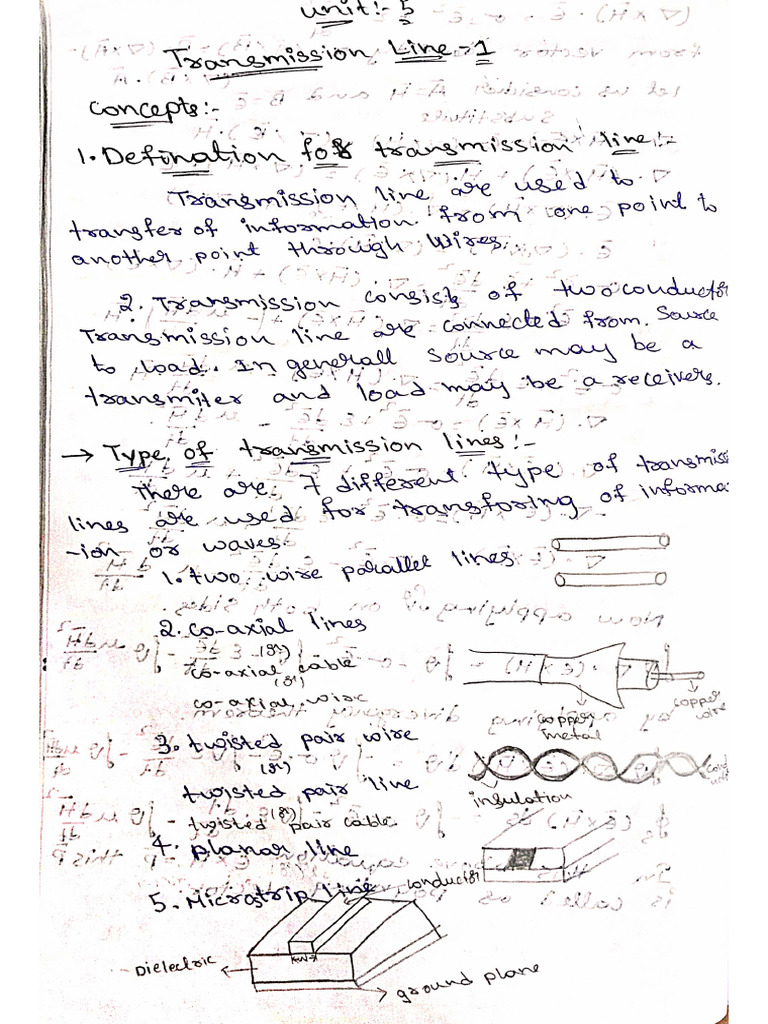 unit:- 5
Transmission Line-1
Concepts:-
1. Defination for transmission line:-
Transmission line are used to
transfer of information from one point to
another point through wires.
2. Transmission consists of two conductor
Transmission line are connected from source
to load. In generall source may be a
transmiter and load may be a receivers.
→ Type of transmission lines:-
There are 7 different type of transmiss
lines are used for transforing of informa
-ion or waves.
1. two wire parallel lines :
2. co-axial lines
(or)
co-axial cable
(or)
co-axial wire
copper metal
copper wire
3. twisted pair wire
(or)
twisted pair line
(or)
- twisted pair cable
insulation
4. planar line
5. Microstrip line
conductor
Dielectric
←W→
ground plane